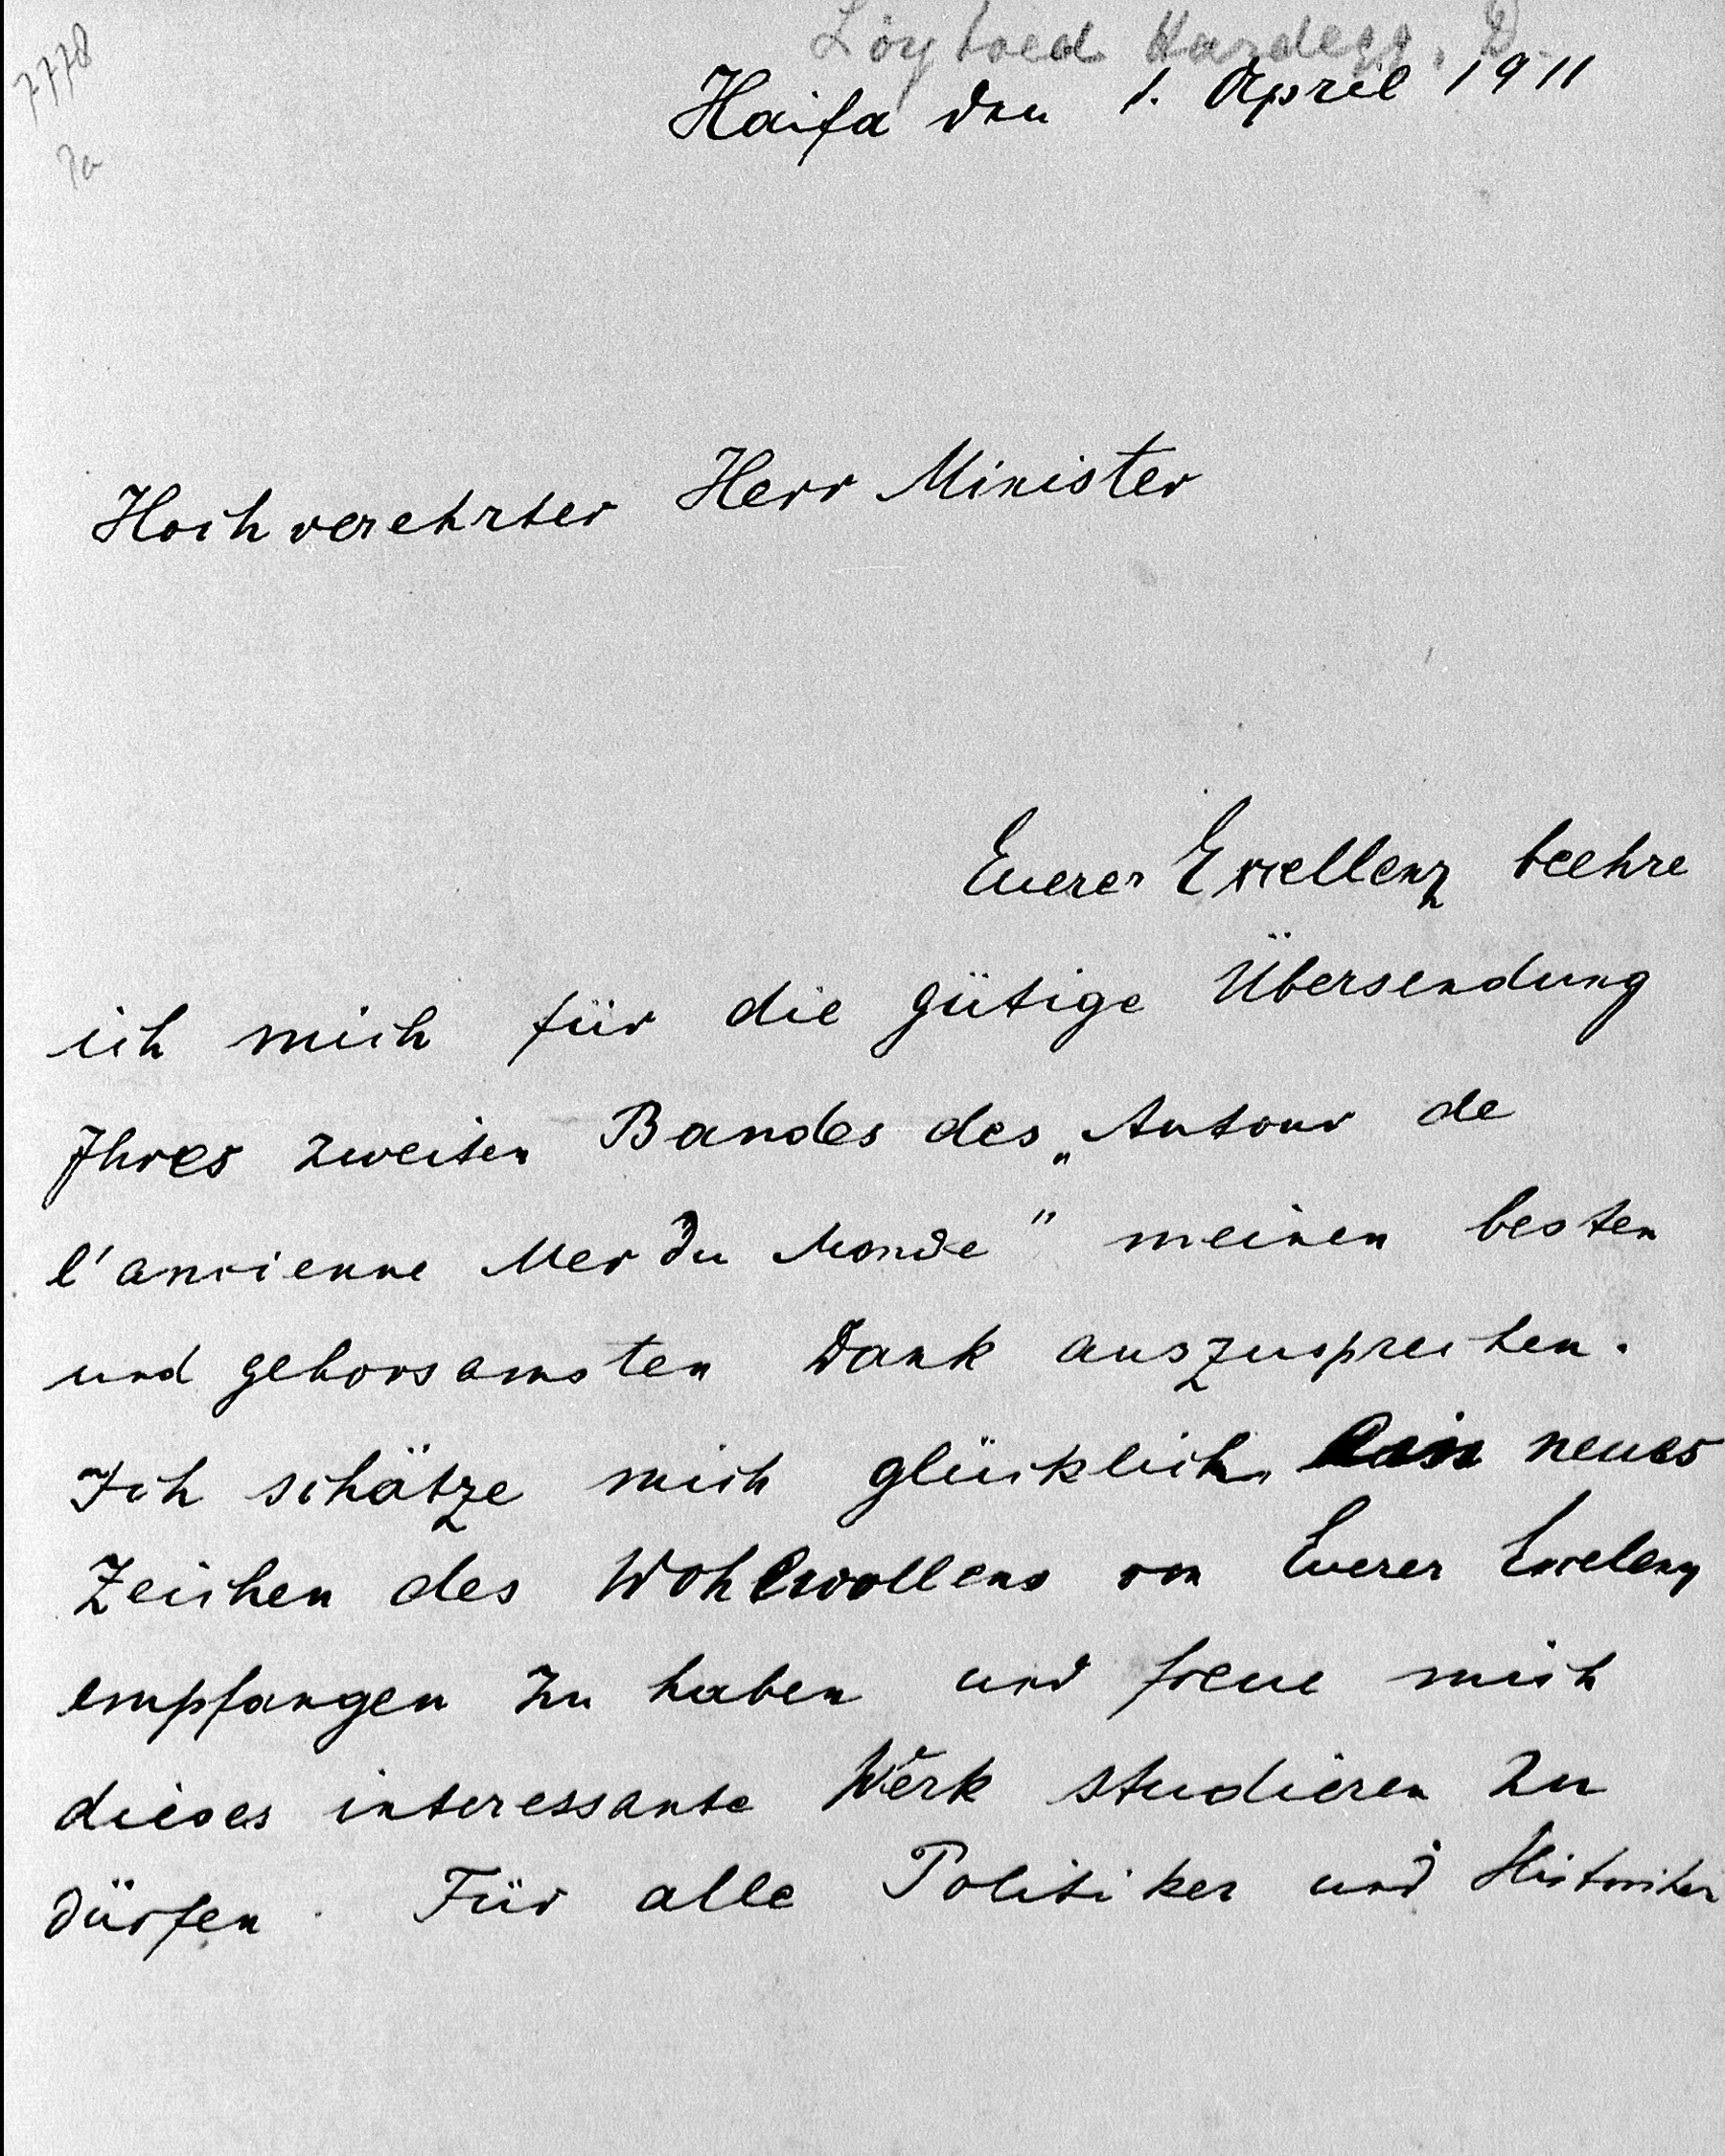 Löytved Hardegg, D.
7778
Haifa den 1. April 1911
Hochverehrter Herr Minister
Euerer Excellenz beehre
ich mich für die gütige Übersendung
Ihres zweiten Bandes des „Autour de
l'ancienne Mer du Monde" meinen besten
und gehorsamsten Dank auszusprechen.
Ich schätze mich glücklich, ein neues
Zeichen des Wohlwollens von Euerer Excelenz
empfangen zu haben und freue mich
dieses interessante Werk studieren zu
dürfen. Für alle Politiker und Historiker